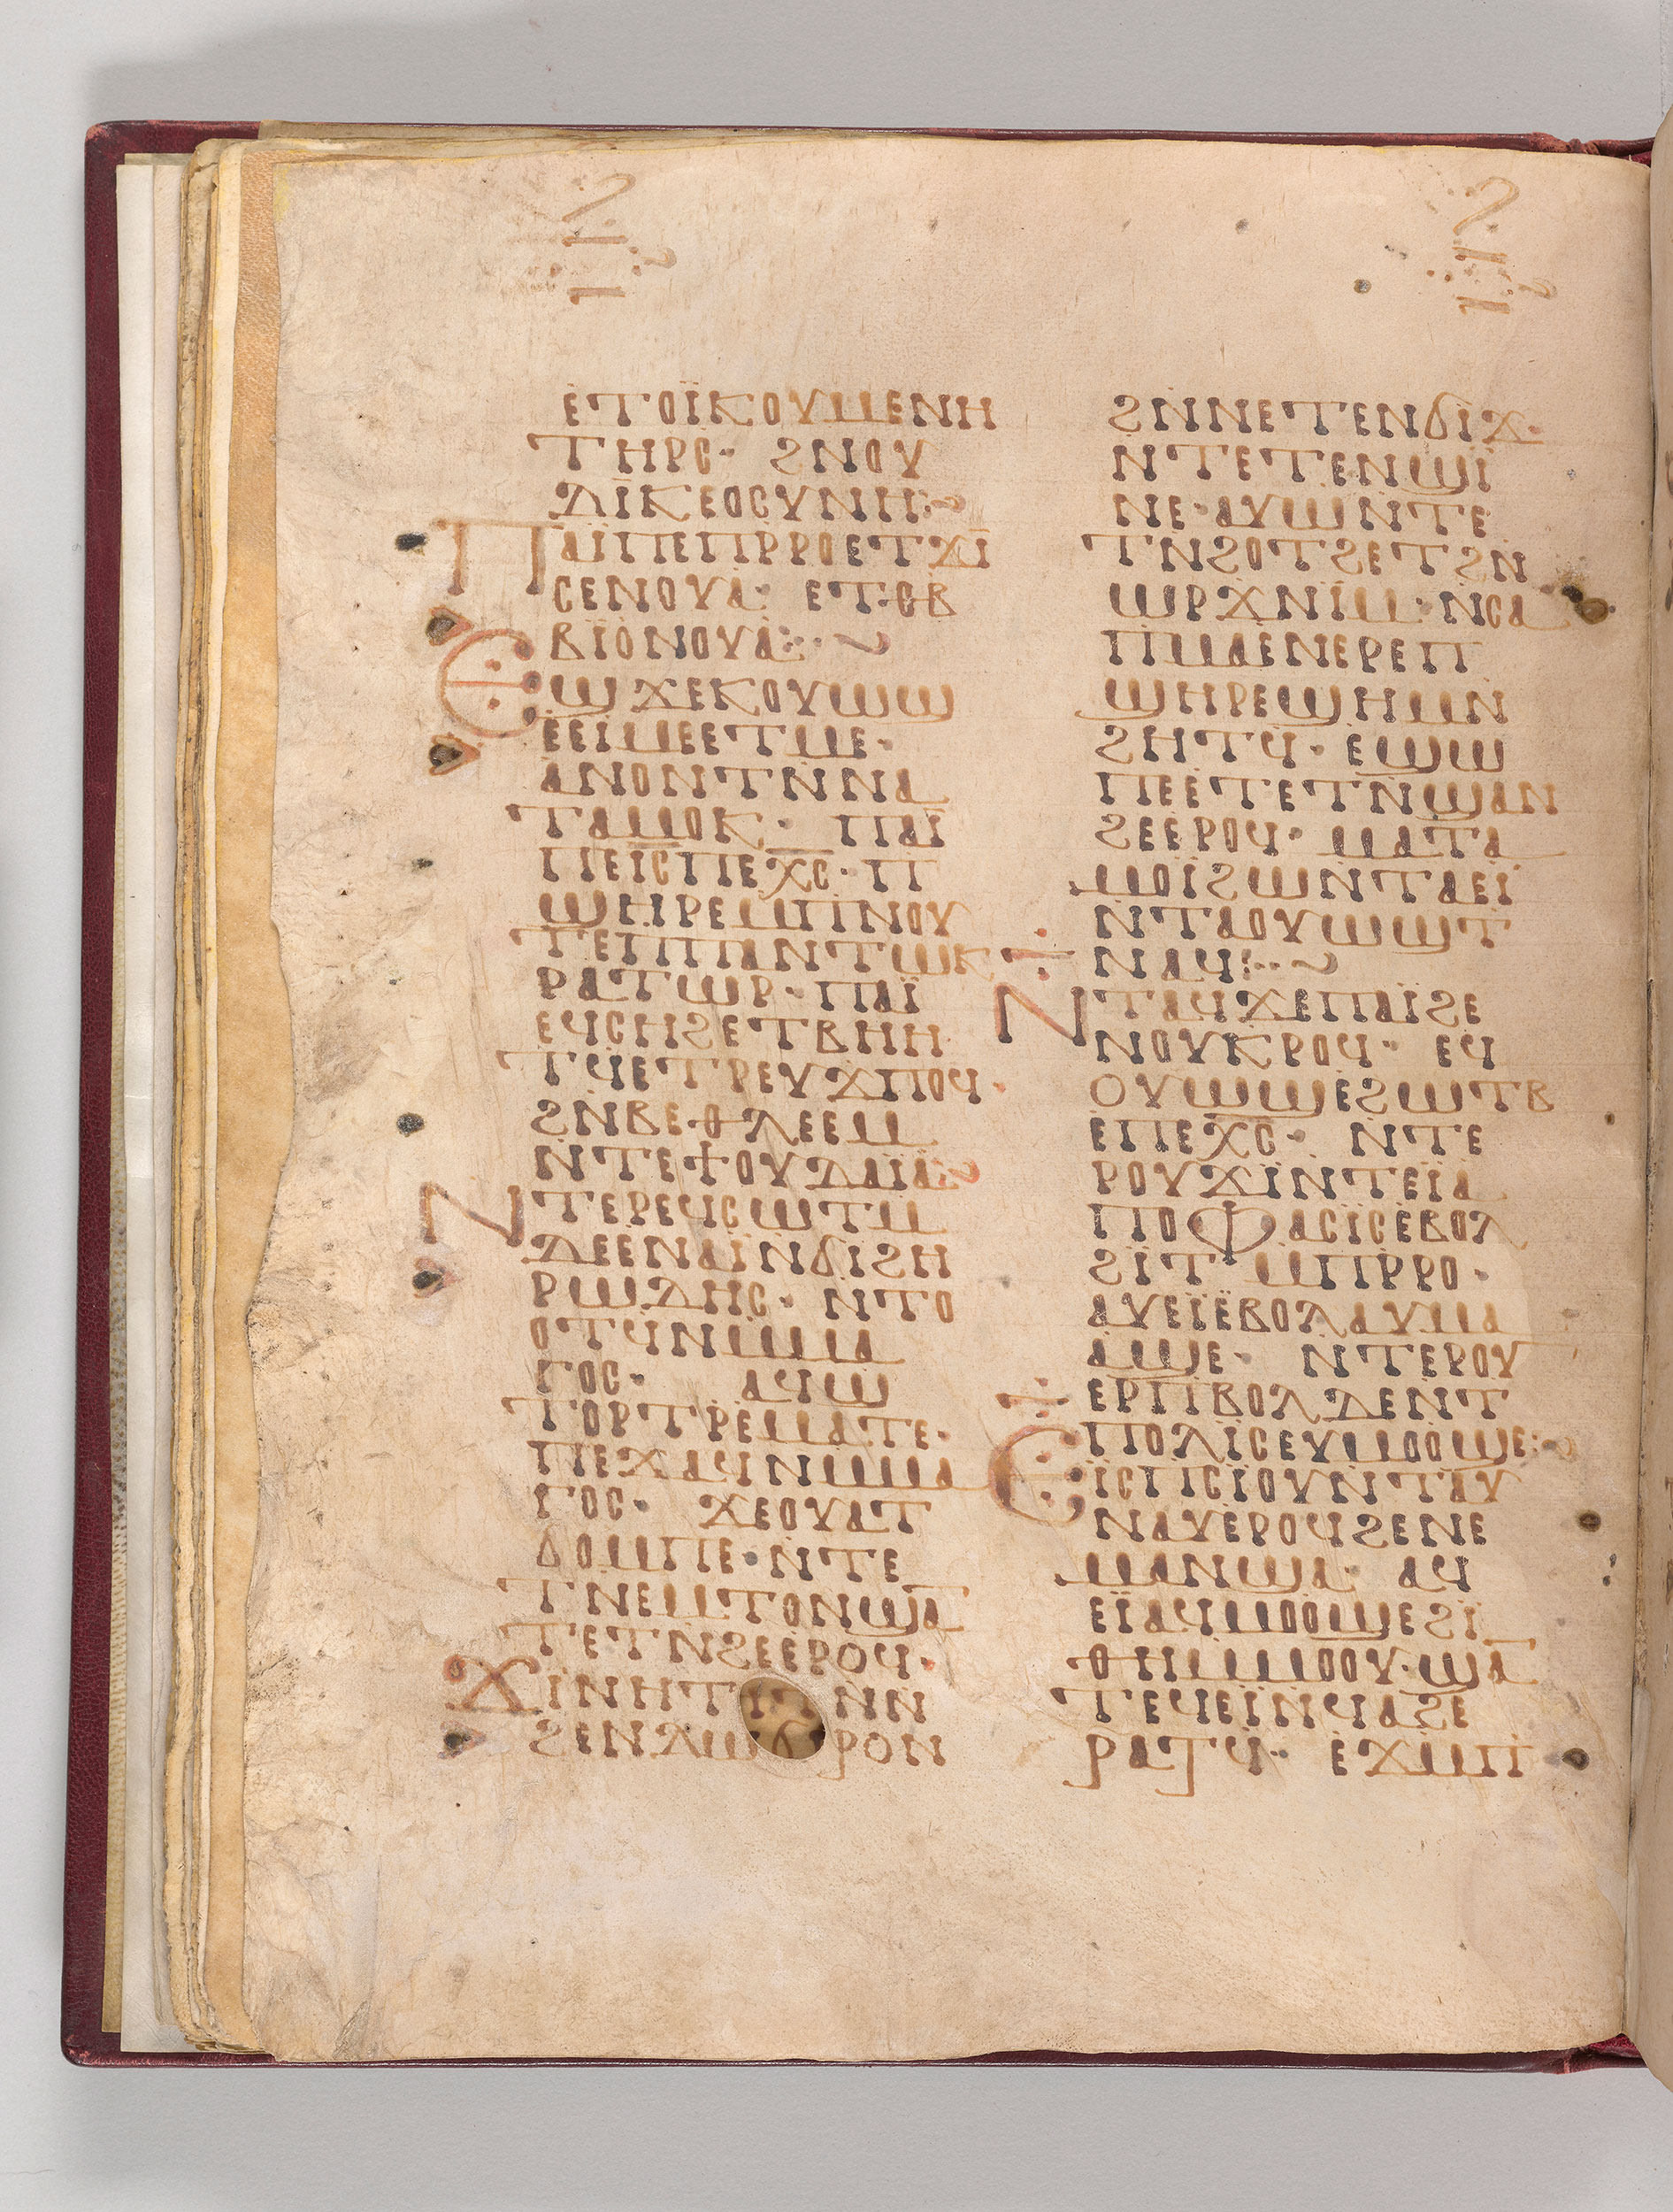 ⲉⲧⲟⲓ̈ⲕⲟⲩⲙⲉⲛⲏ
ⲧⲏⲣⲥ· ϩⲛⲟⲩ
ⲇⲓⲕⲉⲟⲥⲩⲛⲏ:~
ⲡⲁⲓ̈ⲡⲉⲡⲣⲣⲟⲉⲧϫⲓ
ⲥⲉⲛⲟⲩⲁ· ⲉⲧⲑⲃ
ⲃⲓ̈ⲟⲛⲟⲩⲁ:·~
ⲉϣϫⲉⲕⲟⲩⲱϣ
ⲉⲉⲓⲙⲉⲉⲧⲙⲉ·
ⲁⲛⲟⲛⲧⲛⲛⲁ
ⲧⲁⲙⲟⲕ· ⲡⲁⲓ̈
ⲡⲉⲓ̅ⲥ̅ⲡⲉⲭ̅ⲥ̅·ⲡ
ϣⲏⲣⲉⲙⲡⲛⲟⲩ
ⲧⲉⲡⲡⲁⲛⲧⲱⲕ
ⲣⲁⲧⲱⲣ·ⲡⲁⲓ̈
ⲉϥⲥⲏϩⲉⲧⲃⲏⲏ
ⲧϥⲉⲧⲣⲉⲩϫⲡⲟϥ·
ϩⲛⲃⲉⲑⲗⲉⲉⲙ
ⲛⲧⲉϯⲟⲩⲇⲁⲓ̈ⲁ
ⲛⲧⲉⲣⲉϥⲥⲱⲧⲙ
ⲇⲉⲉⲛⲁⲓ̈ⲛϭⲓϩⲏ
ⲣⲱⲇⲏⲥ· ⲛⲧⲟ
ⲟⲧϥⲛⲙⲙⲁ
ⲅⲟⲥ· ⲁϥϣ
ⲧⲟⲣⲧⲣⲉⲙⲁⲧⲉ·
ⲡⲉϫⲁϥⲛⲙⲙⲁ
ⲅⲟⲥ· ϫⲉⲟⲩⲁⲧ
ϭⲟⲙⲡⲉ·ⲛⲧⲉ
ⲧⲛⲉⲙⲧⲟⲛϣⲁ
ⲧⲉⲧⲛϩⲉⲉⲣⲟϥ·
ϫⲓⲛⲏⲧⲓⲧⲛⲛ
ϩⲉⲛⲇⲱⲣⲟⲛ
ϩⲛⲛⲉⲧⲉⲛϭⲓϫ·
ⲛⲧⲉⲧⲉⲛϣⲓ
ⲛⲉ·ⲁⲩⲱⲛⲧⲉ
ⲧⲛϩⲟⲧϩⲉⲧϩⲛ
ⲱⲣϫⲛⲓ̈ⲙ·ⲛⲥⲁ
ⲡⲙⲁⲉⲛⲉⲣⲉⲡ
ϣⲏⲣⲉϣⲏⲙⲛ
ϩⲏⲧϥ· ⲉϣⲱ
ⲡⲉⲉⲧⲉⲧⲛϣⲁⲛ
ϩⲉⲉⲣⲟϥ· ⲙⲁⲧⲁ
ⲙⲟⲓ̈ϩⲱⲛⲧⲁⲉⲓ
ⲛⲧⲁⲟⲩⲱϣⲧ
ⲛⲁϥ:·~
ⲛⲧⲁϥϫⲉⲡⲁⲓ̈ϩⲉ
ⲛⲟⲩⲕⲣⲟϥ· ⲉϥ
ⲟⲩⲱϣⲉϩⲱⲧⲃ
ⲉⲡⲉⲭ̅ⲥ̅· ⲛⲧⲉ
ⲣⲟⲩϫⲓⲛⲧⲉⲓ̈ⲁ
ⲡⲟⲫⲁⲥⲓⲥⲉⲃⲟⲗ
ϩⲓⲧⲙⲡⲣⲣⲟ·
ⲁⲩⲉⲓ̈ⲉⲃⲟⲗⲁⲩⲙⲁ
ⲁϣⲉ· ⲛⲧⲉⲣⲟⲩ
ⲉⲣⲡⲃⲟⲗⲇⲉⲛⲧ
ⲡⲟⲗⲓⲥⲉⲩⲙⲟⲟϣⲉ:·
ⲉⲓ̈ⲥⲡⲥⲓⲟⲩⲛⲧⲁⲩ
ⲛⲁⲩⲉⲣⲟϥϩⲉⲛⲉ
ⲙⲁⲛϣⲁ· ⲁϥ
ⲉⲓ̈ⲁϥⲙⲟⲟϣⲉϩⲓ
ⲑⲏⲙⲙⲟⲟⲩ·ϣⲁ
ⲧⲉϥⲉⲓ̈ⲛϥⲁϩⲉ
ⲣⲁⲧϥ· ⲉϫⲙⲡ